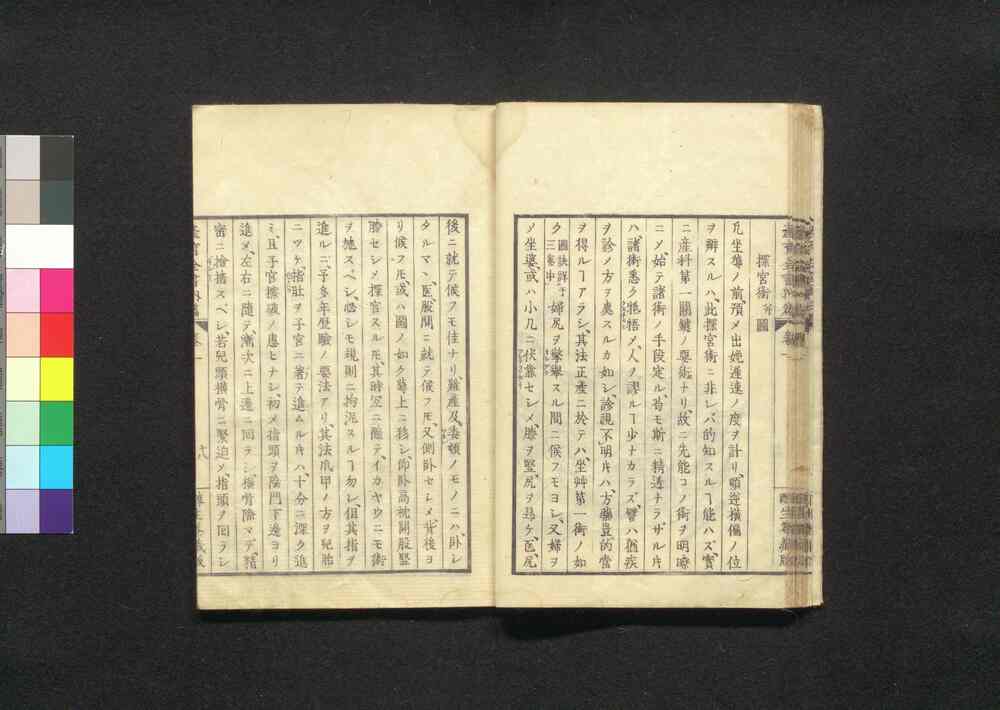 探宮術 并圖
凡坐蓐ノ前、預メ出娩遲速ノ度ヲ計リ、順逆橫偏ノ位
ヲ辨スルハ、此探宮術ニ非レバ的知スルヿ能ハズ、實
ニ産科第一關鍵ノ要術ナリ、故ニ先能コノ術ヲ明瞭
ニメ、始テ諸術ノ手段定ル、苟モ斯ニ精透ナラザル片
ハ、諸術悉ク牴牾メ、人ノ謬ルヿ少ナカラズ、譬ハ猶疾
ヲ診メ方ヲ處スルカ如シ、診視不明片ハ、方藥豈的當
ヲ得ルヿアラン、其法正產ニ於テハ、坐艸第一術ノ如
ク 圖訣詳于三卷中 婦尻ヲ擎擧スル間ニ候フモヨシ、又婦ヲ
ノ坐婆、或ハ小几ニ伏靠セシメ、膝ヲ竪、尻ヲ昂ケ、医尻
後ニ就テ候フモ佳ナリ、難產及ノモノニハ、臥シ
タルマヽ、医股間ニ就テ候フモ、又側臥セシメ、背後ヨ
リ候フモ、或ハ圖ノ如ク蓐上ニ移シ、仰臥高枕開股竪
膝セシメ探宮スルモ、其時宜ニ隨テ、イカヤウニモ術
ヲ施スベシ、必シモ規則ニ拘泥スルヿ勿レ、但其指ヲ
進ルニ、予多年歷驗ノ要法アリ、其法爪甲ノ方ヲ兒胎
ニツケ、指肚ヲ子宮ニ著テ進ムル片ハ、十分ニ深ク進
ミ、且子宮擦破ノ患ヒナシ、初メ指頭ヲ陰門下邊ヨリ
進メ、左右ニ隨テ、漸次ニ上邊ニ回ラシ、橫骨際マデ
密ニ檢搐スベシ、若兒頭橫骨ニ緊迫メ、指頭ノ回ラシ